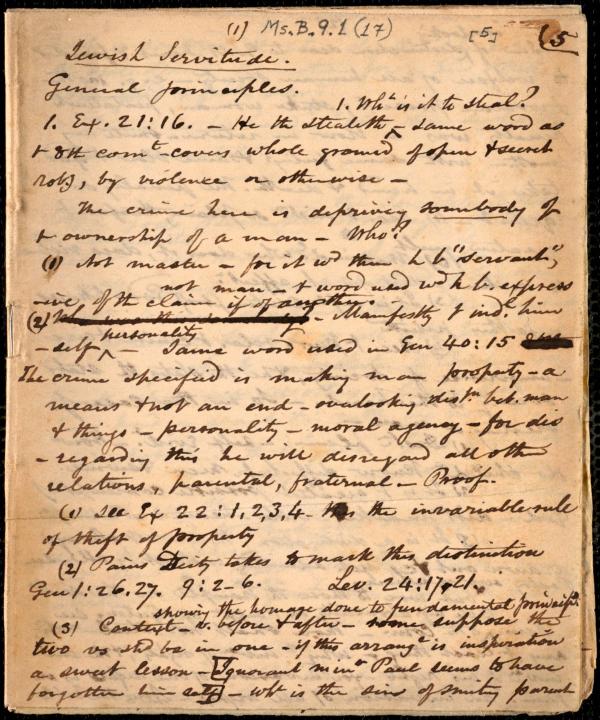 (1) Ms.B.9.1 (17) [5] (5
Jewish Servitude.
General principles.
1. Wht is it to steal?
1. Ex. 21:16. - He tht stealeth ‸ - same word as
t 8th comt - covers whole ground of open & secret
rob), by violence or otherwise -
The crime here is depriving somebody of
t ownership of a man - Who?
(1) Not master - for it wd then h b "servant",
not man - t word used wd h b. express
-ive of the claim if of another.
(2) - Manifestly t ind. him
personality
-self ‸ - Same word used in Gen 40:15
The crime specified is making man property - a
means & not an end - overlooking distn bet. man
& things - personality - moral agency - for dis
- regarding this he will disregard all other
relations, parental, fraternal - Proof.
(1) see Ex 22:1,2,3,4 - the invariable rule
of theft of property
(2) Pains Deity takes to mark this distinction
Gen 1:26.27. 9:2-6. Lev. 24:17,21.
showing the homage done to fundamental principle.
(3) Context - v. before & after - suppose the
two vs shd be in one - if this arrangt is inspiration
a sweet lesson - [Ignorant minr Paul seems to have
forgotten him self] - wht is the sin of smiting parent